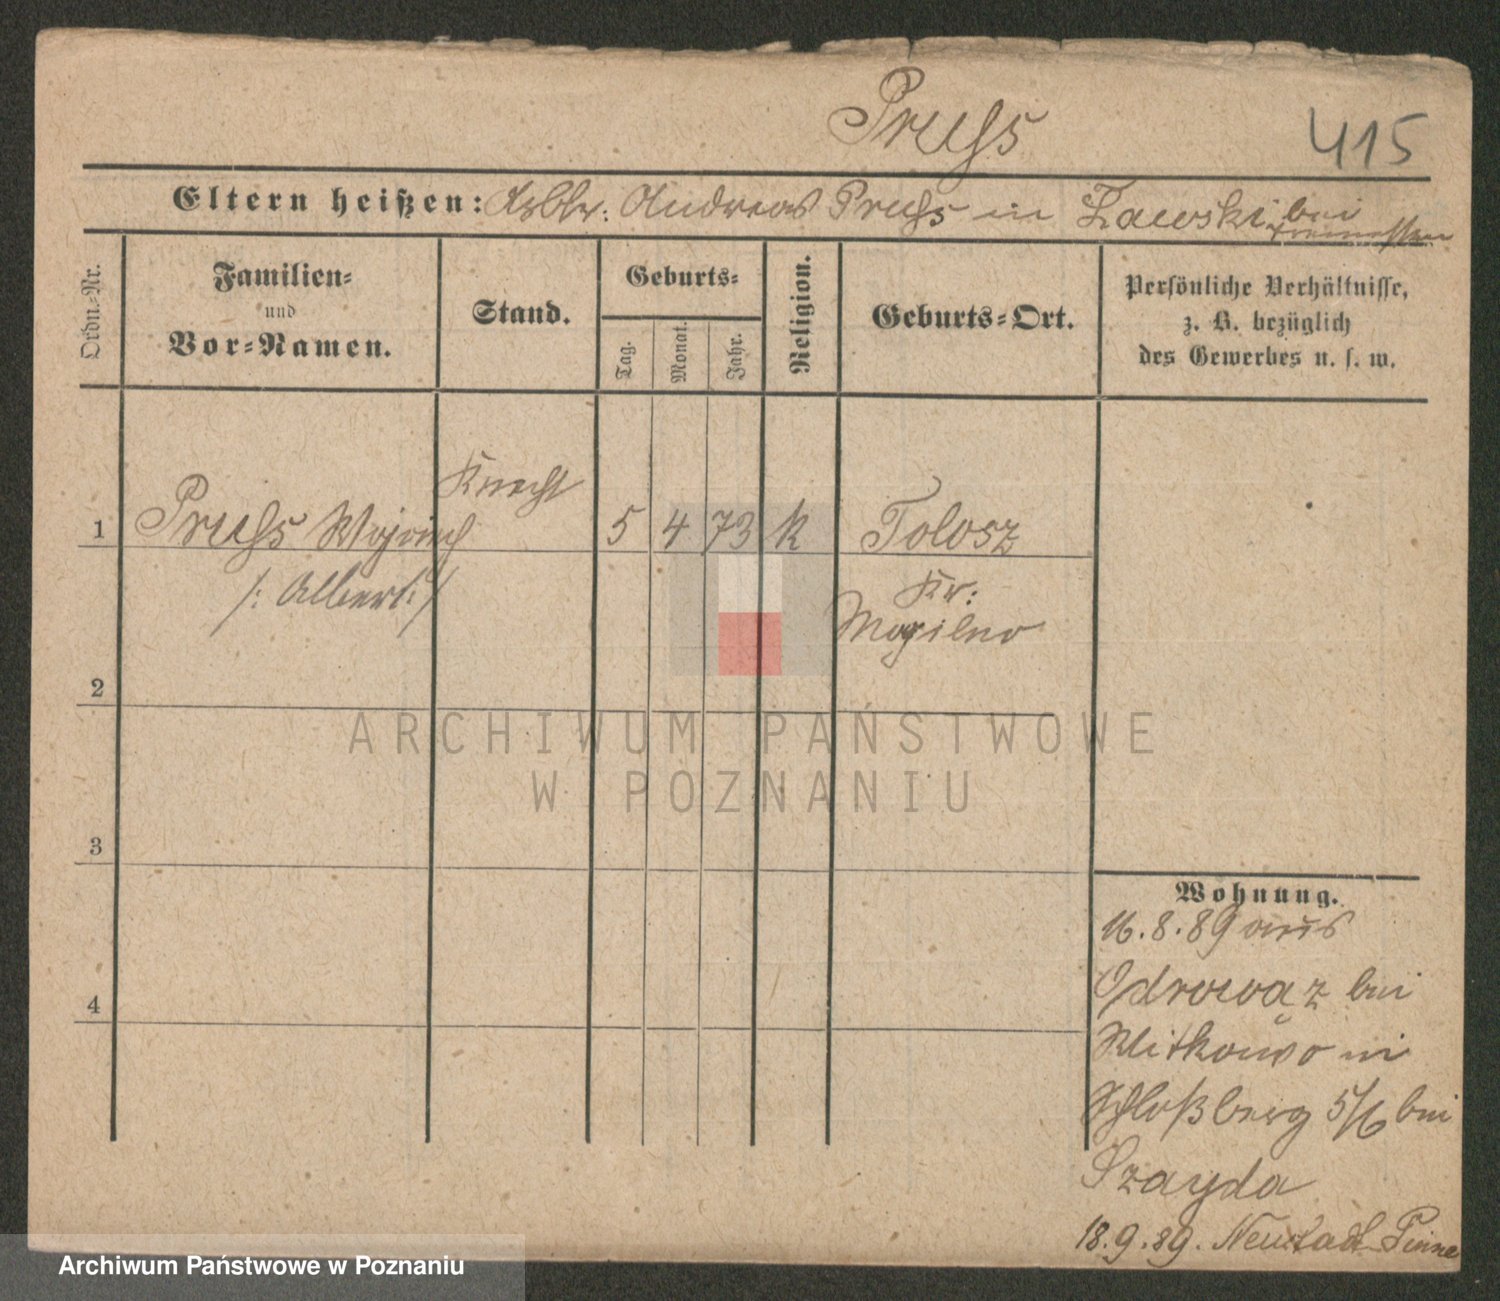 Pruß
415
Eltern heißen: Arbtr. Andreas Pruß in Zawski bei
Tremessen
Ordn.-Nr.
Familien-
und
Vor-Namen.
Stand.
Geburts-
Tag.
Monat.
Jahr.
Religion.
Geburts-Ort.
Persönliche Verhältnisse,
z. B. bezüglich
des Gewerbes u. s. w.
Knecht
1 Pruß Wojciech 5 4 73 k Tolosz
/: Albert :/
Kr:
Mogilno
2
3
4
ARCHIWUM PAŃSTWOWE
W POZNANIU
Wohnung.
16.8.89 aus
Odrowąz bei
Witkowo in
Schloßberg 5/6 bei
Szayda
18.9.89. Neustadt Pinne
Archiwum Państwowe w Poznaniu